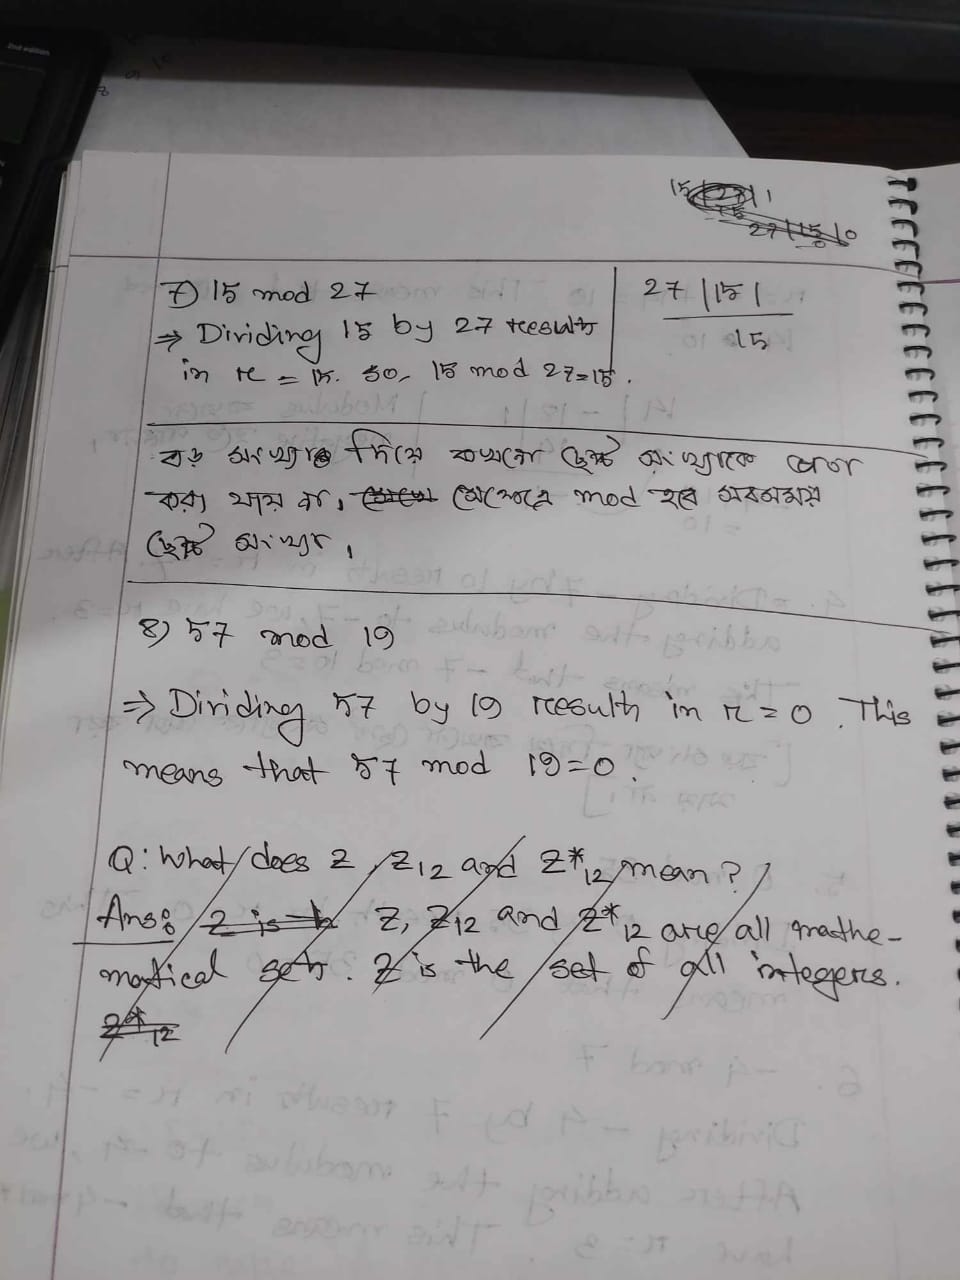 2nd edition
7) 15 mod 27
27 |15|
15
⇒ Dividing 15 by 27 results
in r = 15. So, 15 mod 27=15.
বড় সংখ্যা দিয়ে কখনো ছোট সংখ্যাকে ভাগ
করা যায় না, সেক্ষেত্রে mod হবে সবসময়
ছোট সংখ্যা।
8) 57 mod 19
⇒ Dividing 57 by 19 results in r = 0. This
means that 57 mod 19=0.
Q: What does Z, Z12 and Z*12 mean?
Ans: Z is Z, Z12 and Z*12 are all mathe-
matical sets. Z is the set of all integers.
Z*12